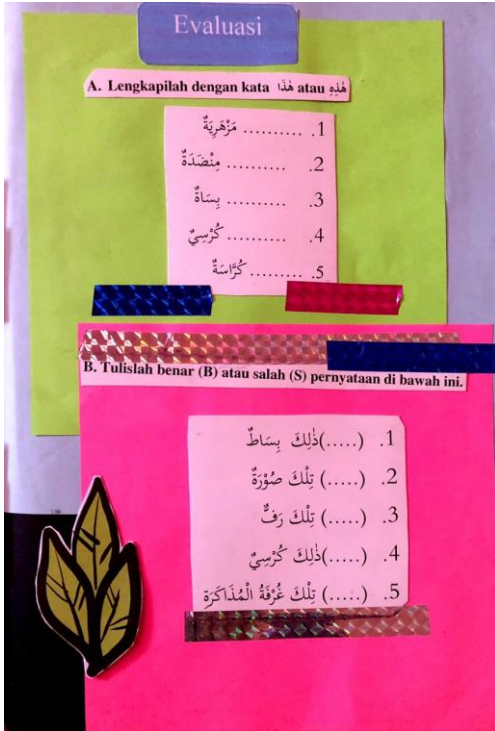 Evaluasi
A. Lengkapilah dengan kata هٰذَا atau هٰذِهِ
1. .......... مَزْهَرِيَةٌ
2. .......... مِنْضَدَةٌ
3. .......... بِسَاةٌ
4. .......... كُرْسِيٌ
5. ......... كُرَّاسَةٌ
B. Tulislah benar (B) atau salah (S) pernyataan di bawah ini.
1. (.....)ذٰلِكَ بِسَاطٌ
2. (.....) تِلْكَ صُوْرَةٌ
3. (.....) تِلْكَ رَفٌّ
4. (.....)ذٰلِكَ كُرْسِيٌ
5. (.....) تِلْكَ غُرْفَةُ الْمُذَاكَرَةِ